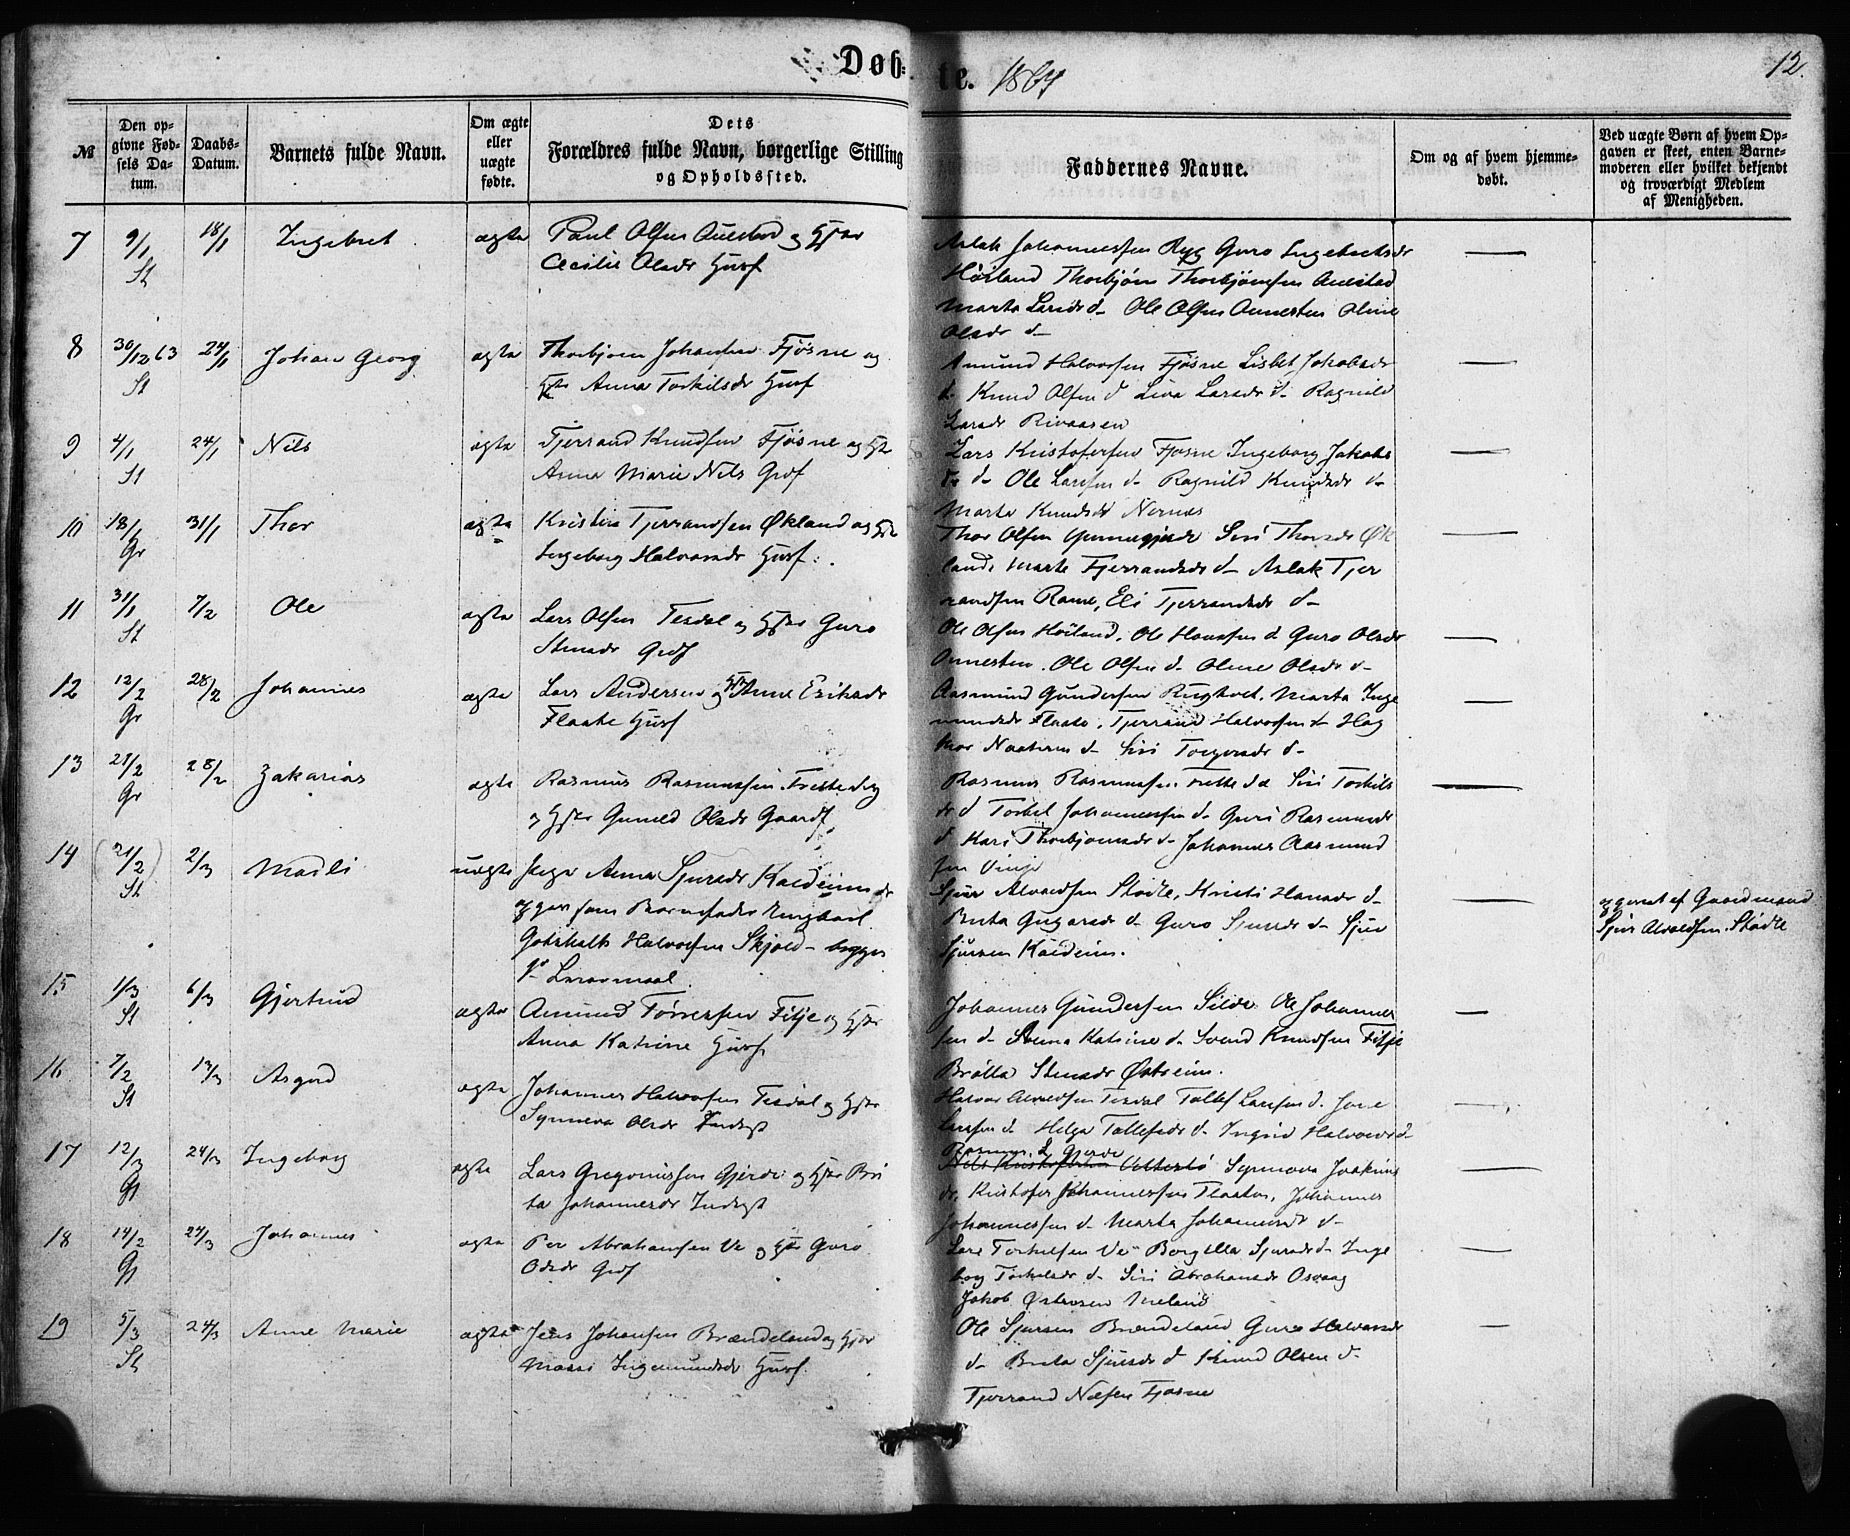 Døb-te. 1864
12.
№
Den opgivne Fødsels Datum.
Daabs-Datum.
Barnets fulde Navn.
Om ægte eller uægte fødte.
Dets Forældres fulde Navn, borgerlige Stilling og Opholdssted.
Faddernes Navne.
Om og af hvem hjemmedøbt.
Ved uægte Børn af hvem Opgaven er skeet, enten Barnemoderen eller hvilket bekjendt og troværdigt Medlem af Menigheden.
7 9/1 St 18/1 Ingebret ægte Paul Olsen Aulstad og Hstr
Cecilie Olsdr Husf
Aslak Johannessen Ryg Guro Ingebretsdr
Høiland Thorbjørn Thorbjørnsen Aulstad
Marta Larsdr d- Ole Olsen Onnesten Oline
Olsdr d-
8 30/12 63 St 24/1 Johan Georg ægte Thorbjørn Johansen Fjøsne og
Hstr Anna Torkilsdr Husf
Amund Halvorsen Fjøsne Lisbet Jakobsdr
d- Knud Olsen d Liva Larsdr d- Ragnild
Larsdr Rivaasen
9 4/1 St 24/1 Nils ægte Tjerrand Knudsen Fjøsne og Hstr
Anna Marie Nils Grdf
Lars Kristofersen Fjøsne Ingeborg Jakobs
dr d- Ole Larsen d- Ragnild Knudsdr d-
Marta Knudsdr Nernes
10 18/1 Gr 31/1 Thor ægte Kristen Tjerrandsen Økland og Hstr
Ingeborg Halvorsdr Husf.
Thor Olsen Siri Thorsdr Øk
land, Marta Tjerrandsdr d- Aslak Tjer
randsen Rame, Eli Tjerrandsdr d-
11 31/1 St 7/2 Ole ægte Lars Olsen Tesdal og Hstr Guro
Stensdr Grdf
Ole Olsen Høiland, Ole Hansen d Guro Olsdr
Onnesten. Ole Olsen d- Oline Olsdr d-
12 12/2 Gr 28/2 Johannes ægte Lars Andersen og Hstr Anne Eriksdr
Flaate Husf
Aasmund Gundersen Rugtvet, Marta Inge
mundsdr Flaate, Tjerrand Halvorsen d- Hog
d- Siri Torgersdr d-
13 21/2 Gr 28/2 Zakarias ægte Rasmus Rasmussen
og Hstr Gunild Olsdr Gaardf
Rasmus Rasmussen Siri Torkils
dr d Torkel Johannessen d- Guri Rasmusdr
d Kari Thorbjørnsdr d- Johannes Aasmund
sen Vinje
14 (21/2) St 2/3 Madli uægte Pige Anna Sjursdr Kaldeim
opgav som Barnefader Ungkarl
Gotskalk Halvorsen Skjold - begges
1ste Leiermaal
Sjur Alvaldsen Stødle, Kristi Hansdr d-
Brita Gregarsdr d- Guro Sjursdr d- Sjur
Sjursen Kaldeim.
opgivet af Gaardmand
Sjur Alvaldsen Stødle
15 1/3 St 6/3 Gjertrud ægte Amund Tørresen Fitje og Hstr
Anna Katrine Husf
Johannes Gundersen Silde Ole Johannes
sen d- Anna Katrine d- Svend Knudsen Fitje
Brølla Stensdr Østreim.
16 7/2 St 13/3 Asgerd ægte Johannes Halvorsen Tesdal og Hstr
Synneva Olsdr Inderst
Halvor Alvaldsen Tesdal Tollef Larsen d. Jone
Larsen d- Helga Tollefsdr d- Ingrid Halvorsdr d-
17 12/3 Gr 24/3 Ingeborg ægte Lars Gregoriussen Gjerde og Hstr Bri
ta Johannesdr Inderst
Rasmus L Gjerde
Synnova Joakims
dr, Kristofer Johannessen Flaaten, Johannes
Johannessen d- Marta Johannesdr d-
18 14/2 Gr 24/3 Johannes ægte Per Abrahamsen Ve og Hstr Guro
Olsdr Grdf
Lars Torkelsen Ve Borgilla Sjursdr d- Inge
borg Torkelsdr d- Siri Abrahamsdr Osvaag
Jakob Østensen Meland
19 5/3 St 24/3 Anne Marie ægte Jens Johansen Brændeland og Hstr
Ingemundsdr Husf.
Ole Sjursen Brændeland Guro Halvorsdr
d- Brita Sjursdr d Knud Olsen d-
Tjerrand Fjøsne